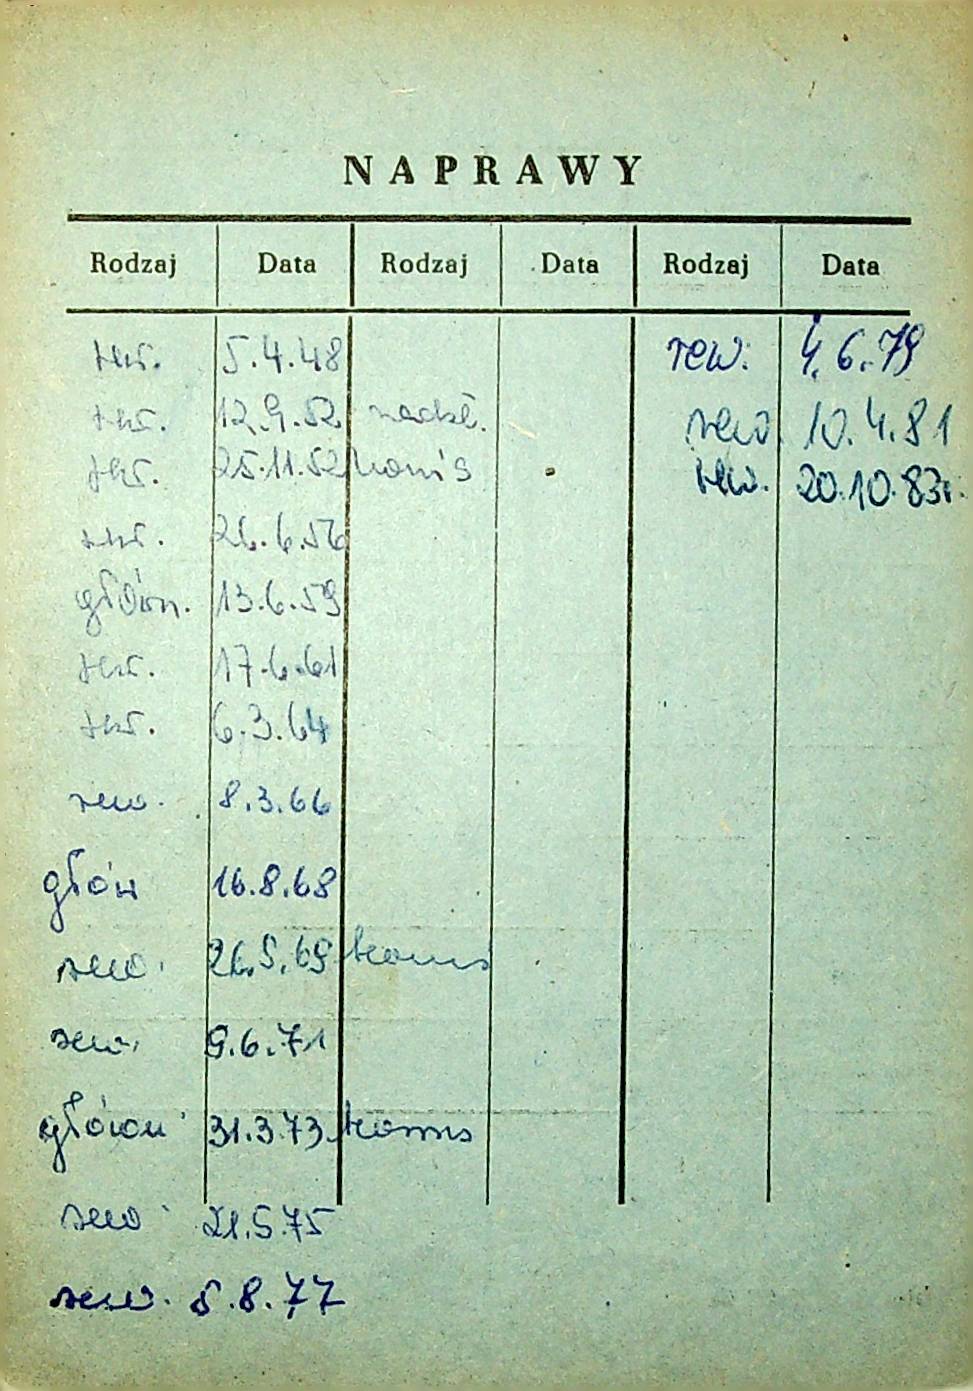 NAPRAWY
Rodzaj Data Rodzaj Data Rodzaj Data
5.4.48 rew. 4.6.79
12.9.52 rew. 10.4.81
25.11.52 rew. 20.10.83r.
26.6.56
główn. 13.6.59
17.6.61
6.3.64
rew. 8.3.66
głów 16.8.68
rew. 26.5.69
rew. 9.6.71
główn 31.3.73
rew. 21.5.75
rew. 5.8.77